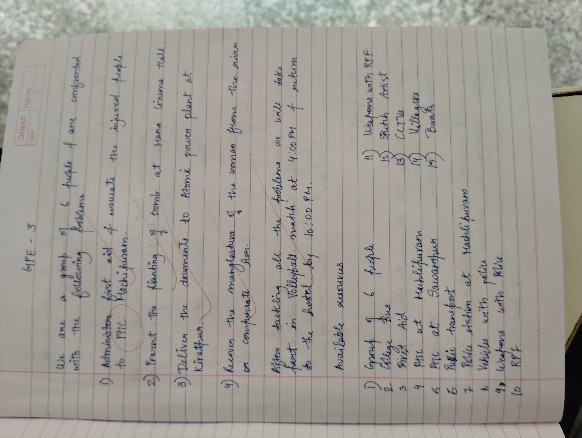 GPE - 3
We are a group of 6 people & are confronted
with the following problems
1) Administer first aid & evacuate the injured people
to PHC Machlipuram.
2) Prevent the planting of bomb at Hana Cinema Hall.
3) Deliver the documents to Atomic power plant at
Kiratpur.
4) Recover the mangalsutra of the woman from the river
or compensate her.
After tackling all the problems we will take
part in Volleyball match at 4:00 PM & return
to the hostel by 10:00 PM.
Available resources
1) Group of 6 people
2 College Bus
3 First Aid
4 PHC at Machlipuram
5 PHC at
6 Public transport
7 Police station at Machlipuram
8 Vehicle with police
9 Weapons with police
10 RPF
11) Weapons with RPF
12) Sketch Artist
13) CCTVs
14) Villagers
15) Boats